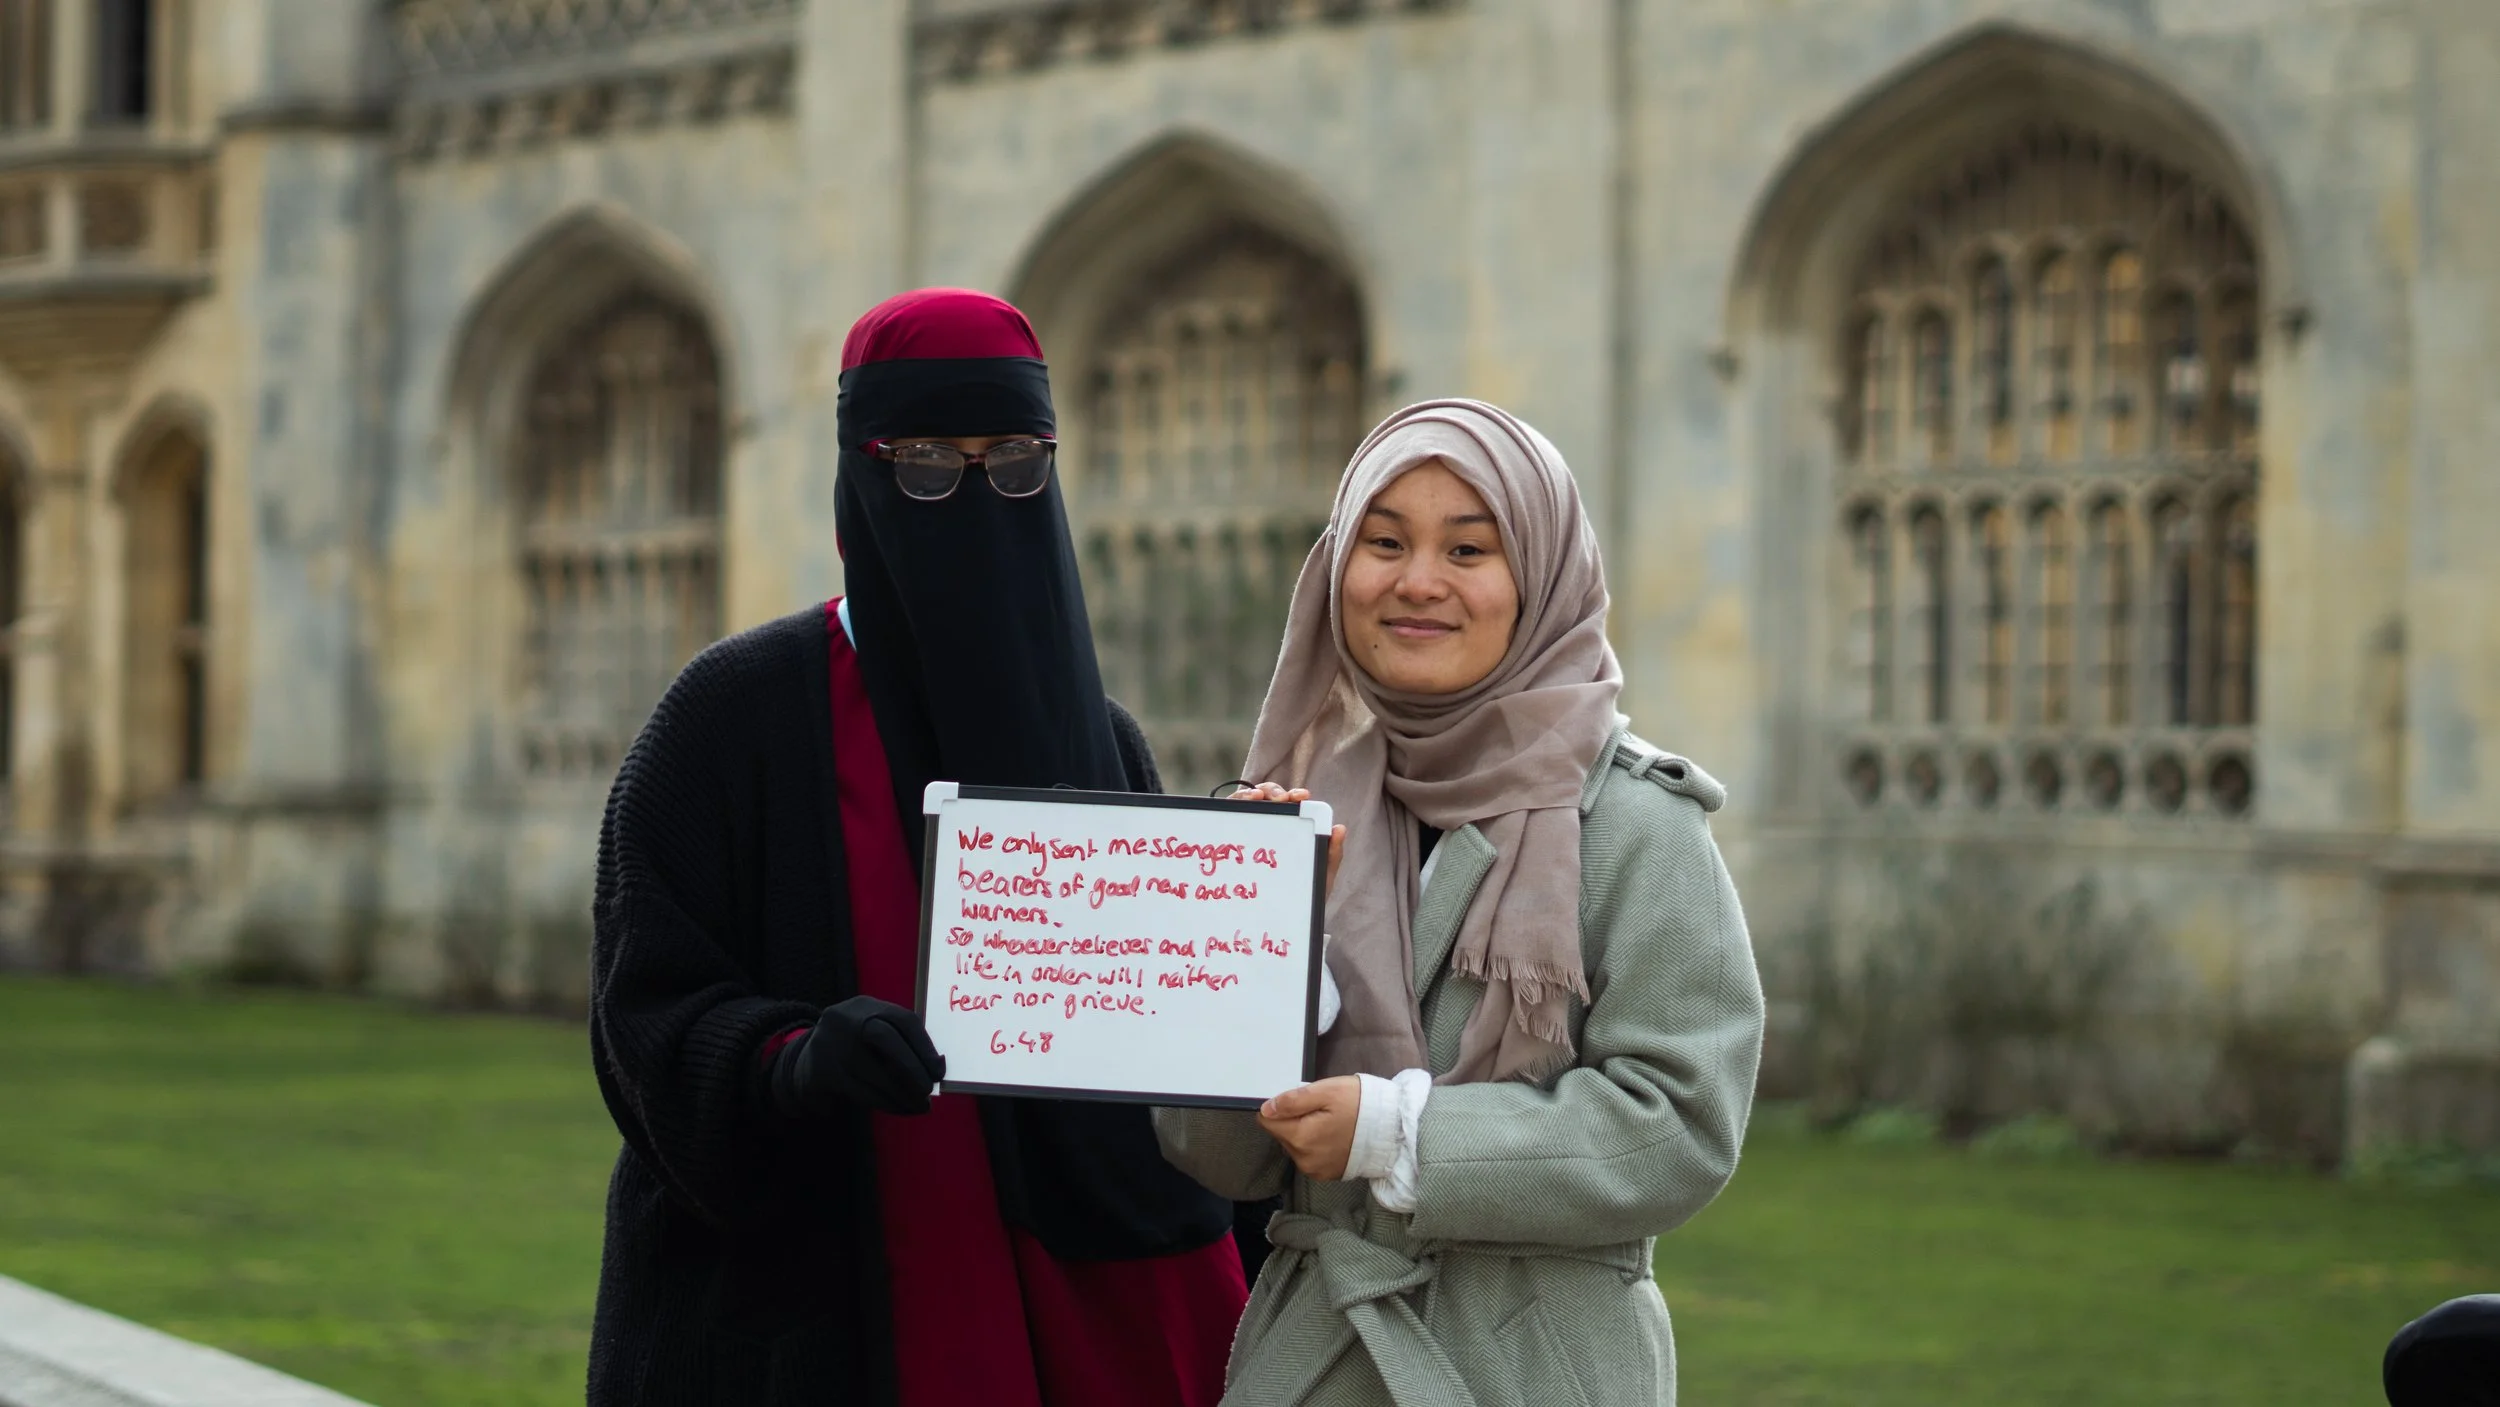 We only sent messengers as
bearers of good news and as
warners.
So whoever believes and puts his
life in order will neither
fear nor grieve.
6.48